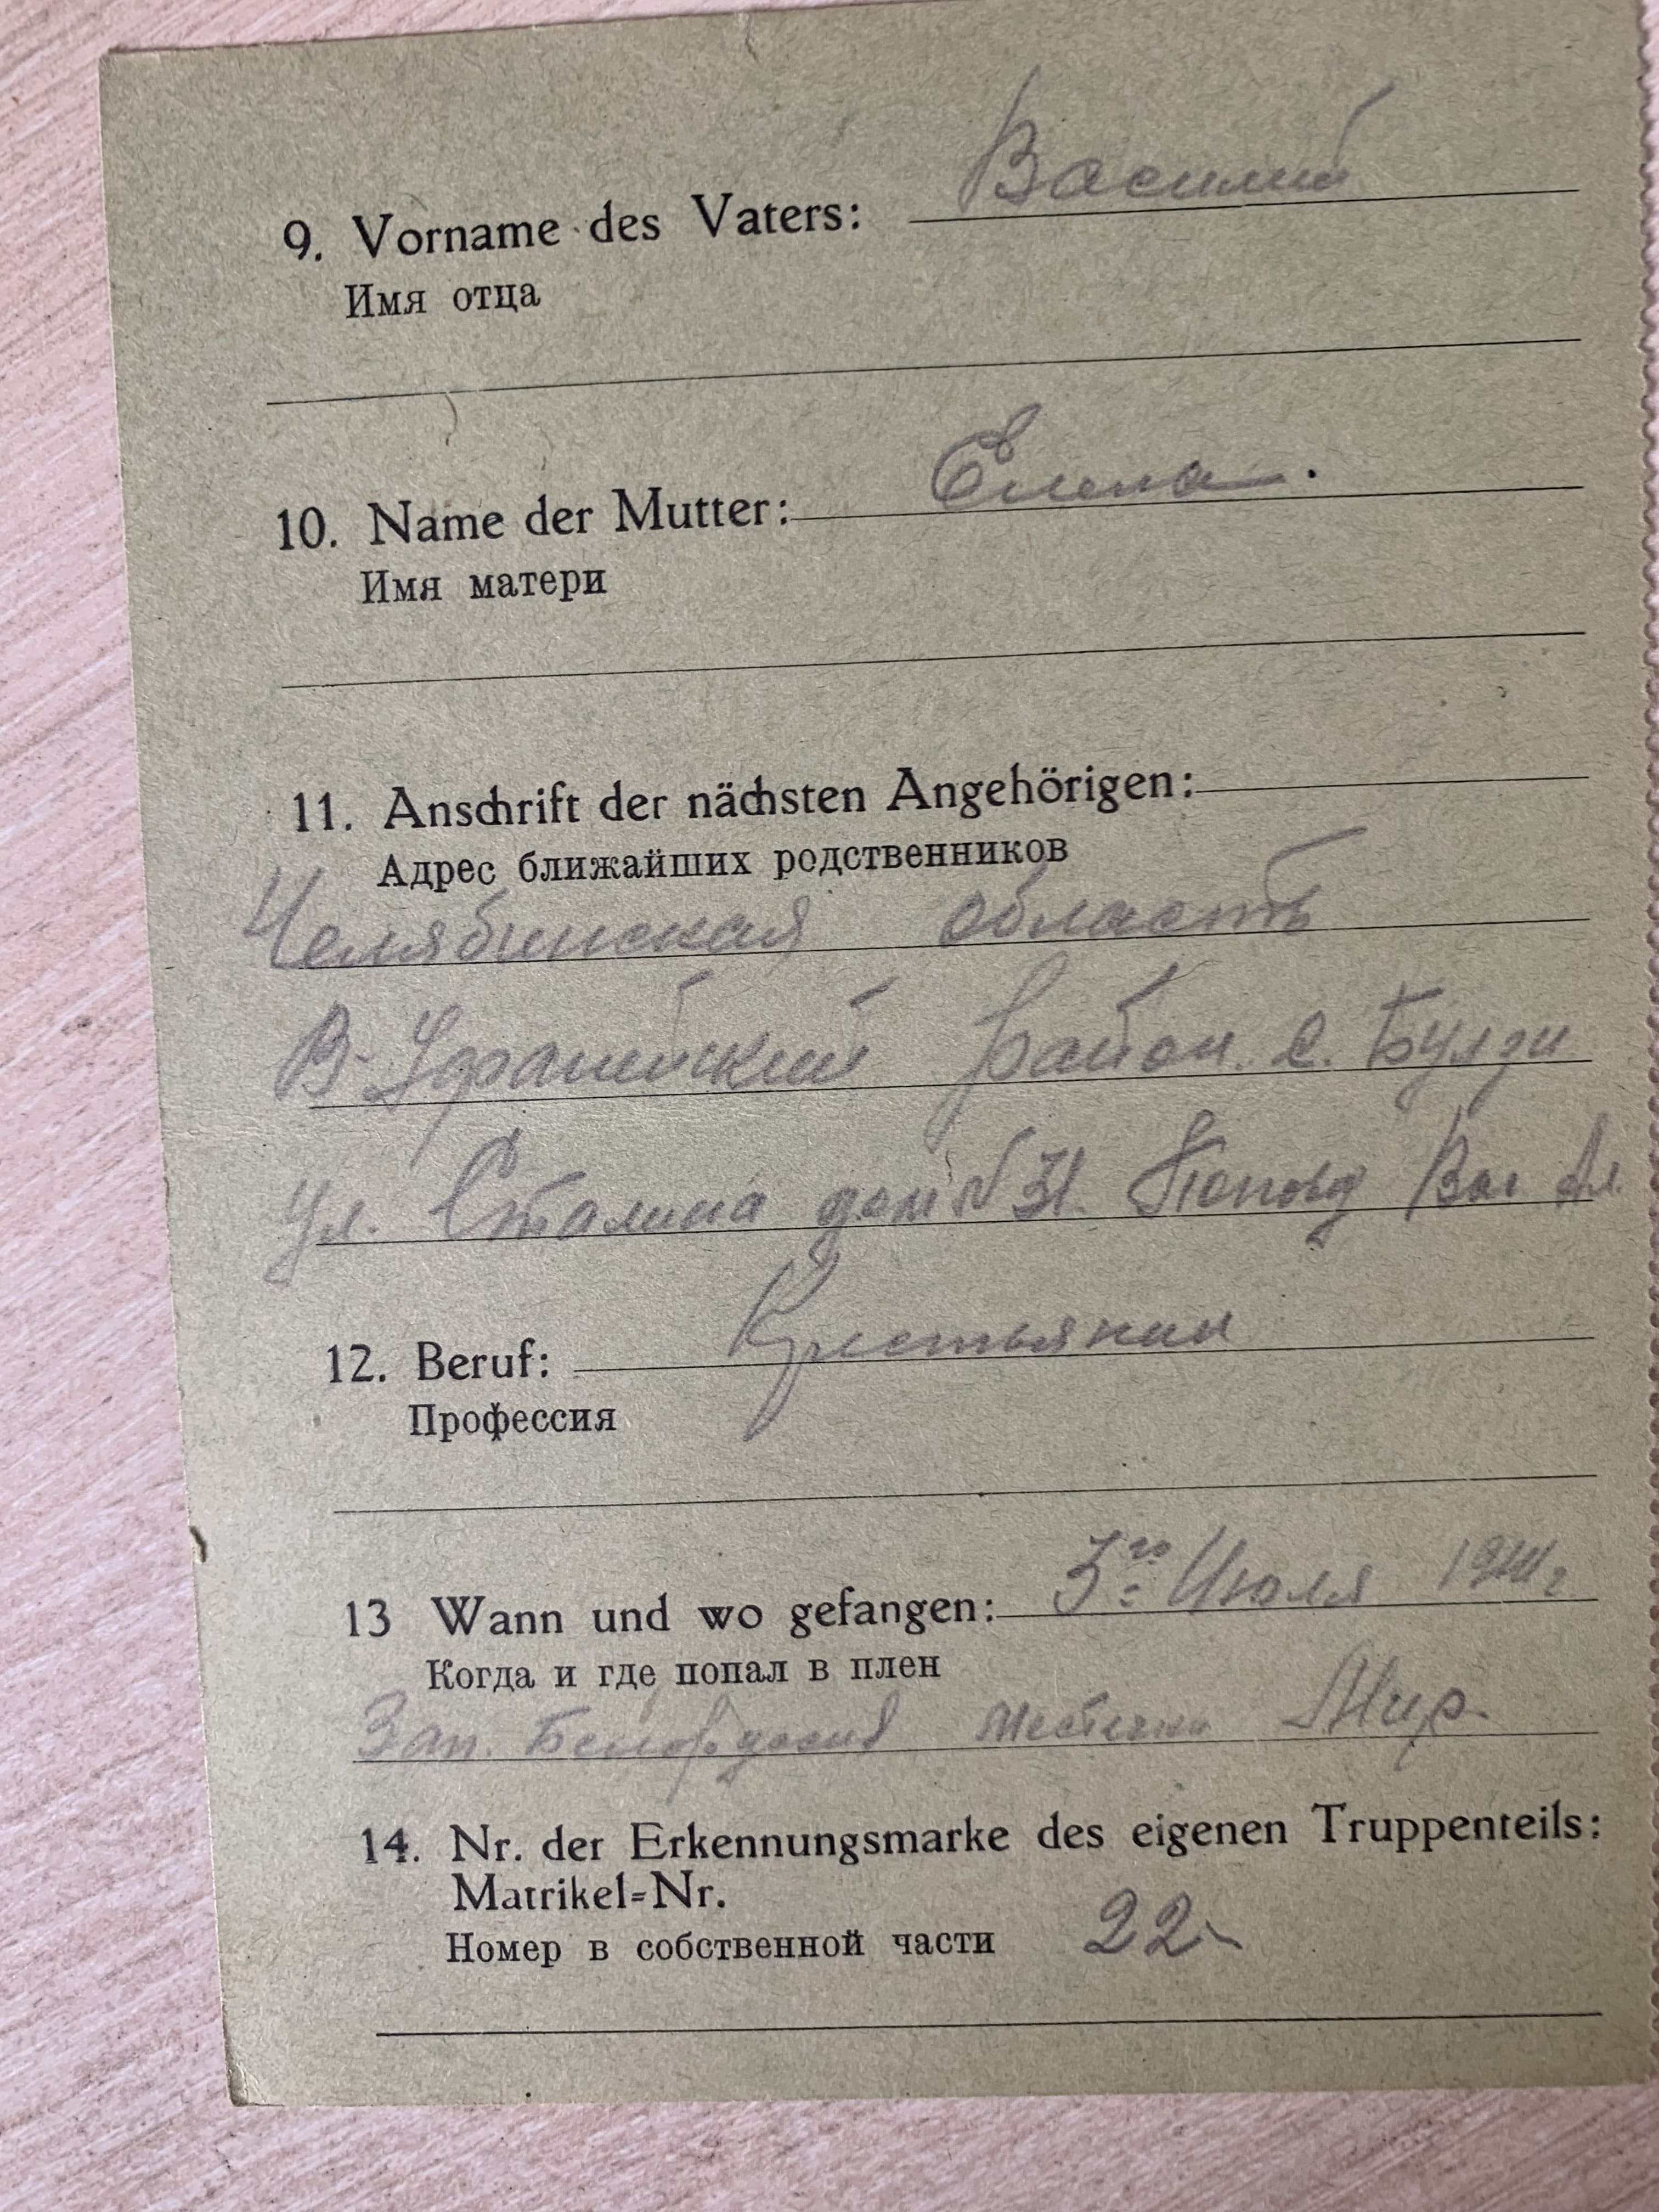 9. Vorname des Vaters: Василий
Имя отца
10. Name der Mutter: Елена.
Имя матери
11. Anschrift der nächsten Angehörigen:
Адрес ближайших родственников
Челябинская область
В-Уфалейский район. с. Булзи
ул. Сталина дом № 31. Попов Вас Ал.
12. Beruf: Крестьянин
Профессия
13 Wann und wo gefangen: 3го Июля 1941г
Когда и где попал в плен
Зап. Белоруссия местечко Мир.
14. Nr. der Erkennungsmarke des eigenen Truppenteils:
Matrikel=Nr.
Номер в собственной части 22